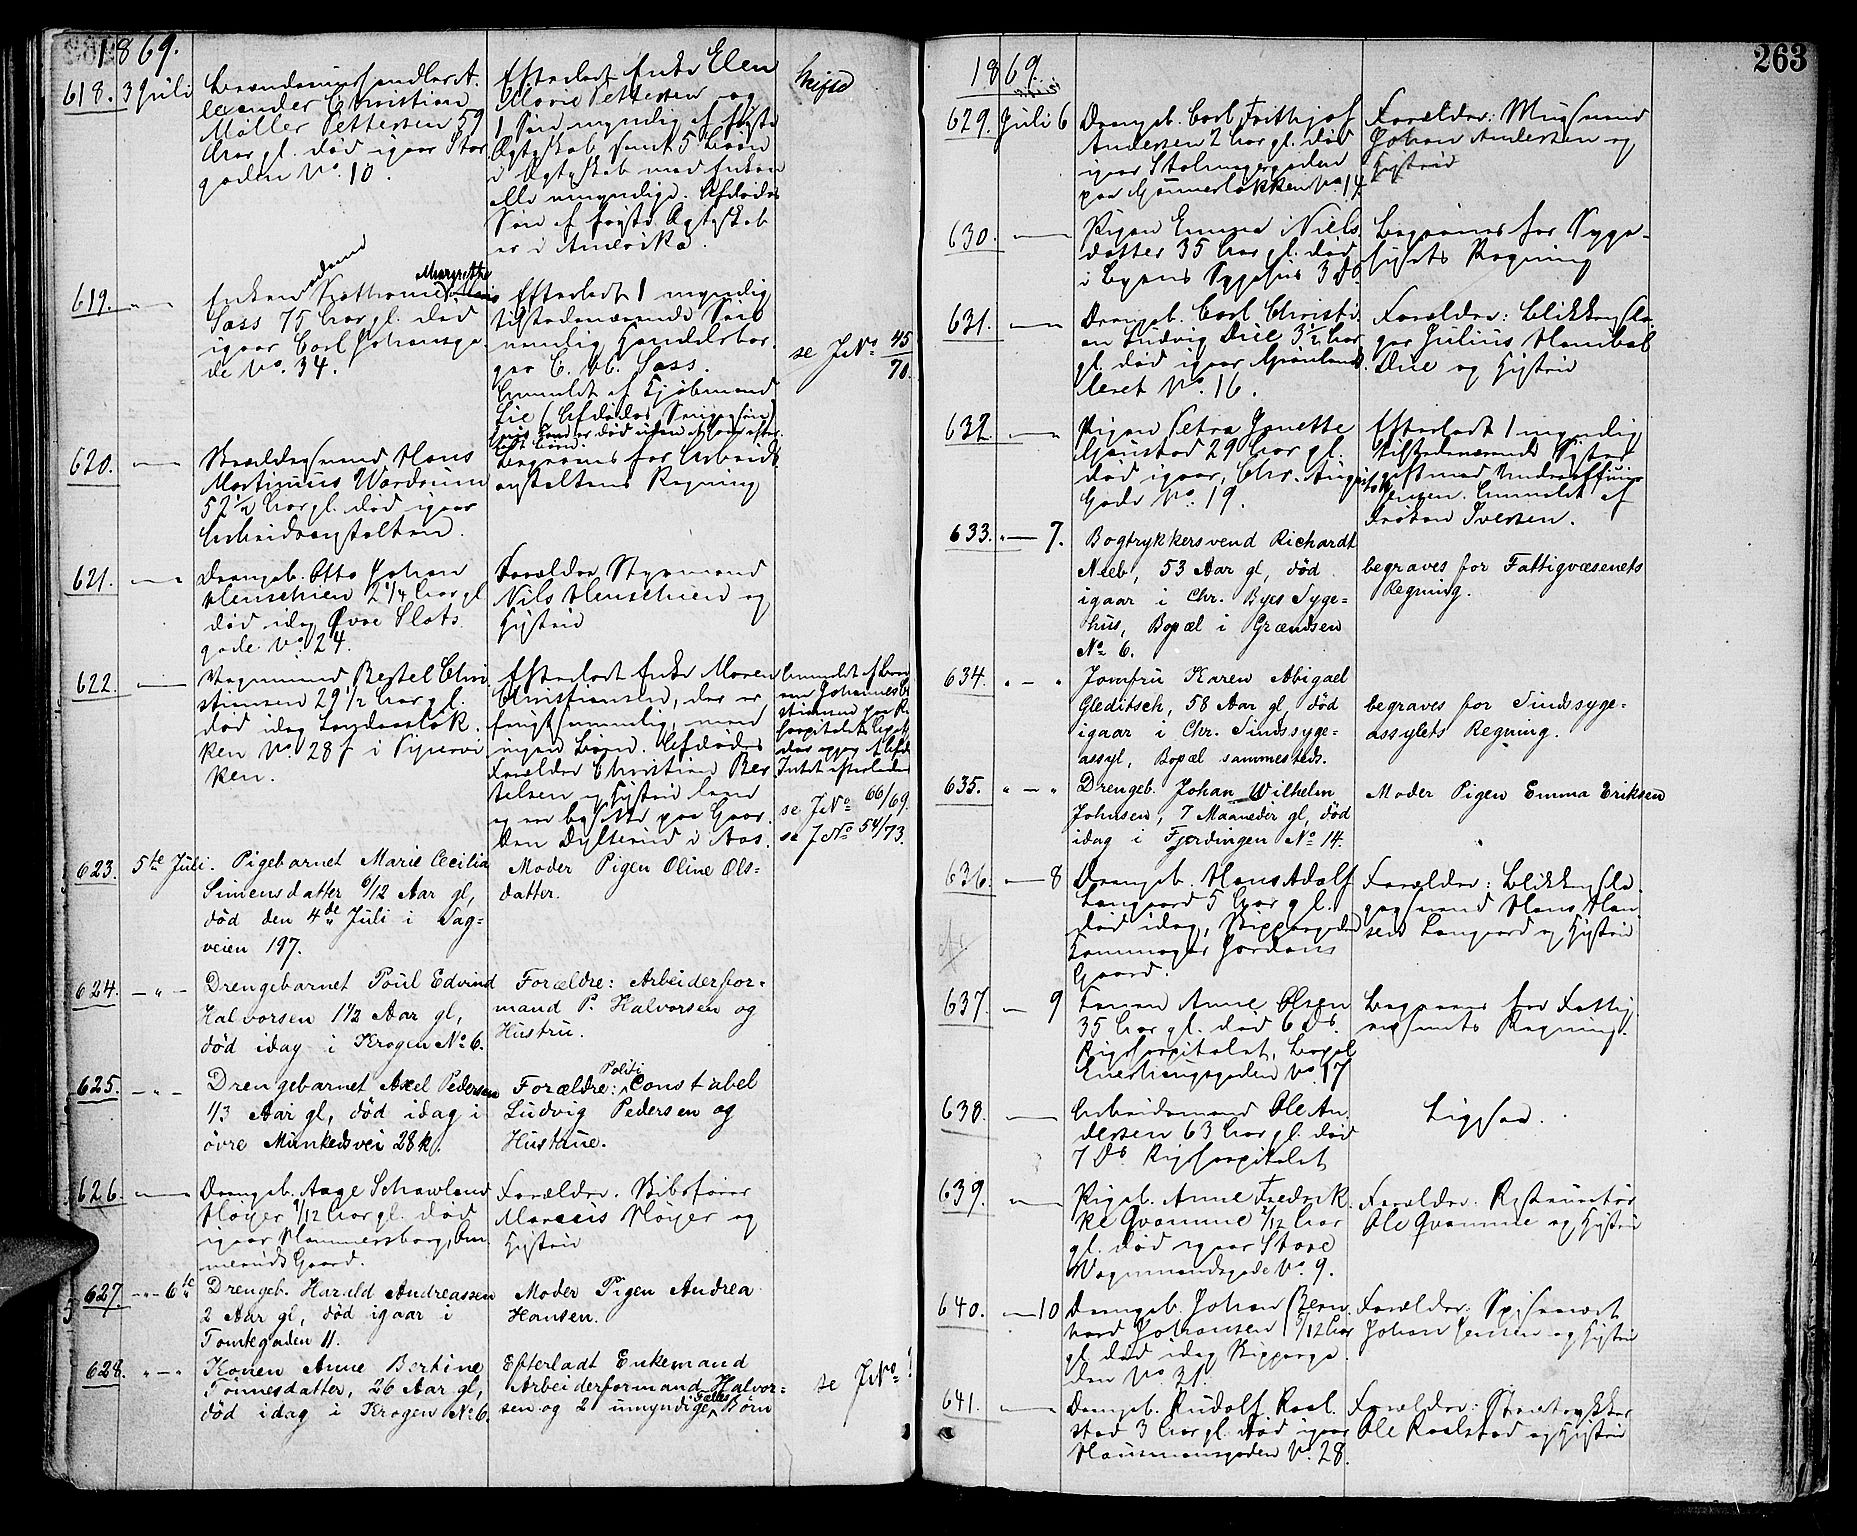 1869.
618. 3 Juli
Christian
Møller Pettersen 59
Aar gl. død igaar Stor
gaden No. 10.
Efterladt Enke Elen
Marie Pettersen og
1 Søn myndig af første
Ægteskab samt 5 Børn
i Ægteskab med Enken
alle umyndige. Afdødes
Søn af første Ægteskab
er i Amerika.
Skifte
619. — " —
Enken
Margrethe
Sass 75 Aar gl. død
igaar Carl Johansga-
de No. 34.
Efterladt 1 myndig
tilstedeværende Søn
nemlig Handelsbor-
ger C. Sass.
Anmeldt af Kjøbmand
Lie (Afdødes Svigersøn)
se JNo 45/70.
620. — " —
Hans
Martinius Wardrum
52 1/2 Aar gl. død igaar
Arbeidsanstalten.
Begraves for Arbeids
anstaltens Regning
621. — " —
Drengeb. Otto Johan
Henschien 2 1/4 Aar gl
død idag Øvre Slots
gade No. 24.
Forældre Styrmand
Nils Henschien og
Hustru
622. —
Vognmand Bertel Chri
stiansen 29 1/2 Aar gl.
død idag
ken No. 28 f i Pipervi
ken.
Efterladt Enke Maren
Christiansen, der er
frugtsommelig, men
ingen Børn. Afdødes
Forældre Christian Ber
telsen og Hustru leve
og er bosatte paa Gaar
den Dysterud i Aas.
se JNo 66/69.
se JNo 54/73.
623. 5te Juli.
Pigebarnet Marie Cecilia
Simensdatter 6/12 Aar gl,
død den 4de Juli i Sag-
veien 197.
Moder Pigen Oline Ols-
datter.
624. — " —
Drengebarnet Poul Edvind
Halvorsen 1 1/2 Aar gl,
død idag i Krogen No 6.
Forældre: Arbeiderfor-
mand P. Halvorsen og
Hustru.
625. — " —
Drengebarnet Axel Pedersen
1/3 Aar gl, død idag i
övre Munkedsvei 28k.
Forældre: Politi Constabel
Ludvig Pedersen og
Hustrue.
626. —
Drengeb. Aage Schawland
Høyer 1/12 Aar gl. død
igaar Hammersborg, Am
meruds Gaard.
Forældre. Skibsfører
Marcus Høyer og
Hustru
627. — " — 6te
Drengeb. Harald Andreassen
2 Aar gl, død igaar i
Tomtegaden 11.
Moder Pigen Andrea
Hansen.
628. " — "
Konen Anne Bertine
Tønnesdatter, 26 Aar gl,
død idag i Krogen No 6.
Efterladt Enkemand
Arbeiderformand Halvor-
sen og 2 umyndige Fælles Børn
se JNo
263
1869.
629. Juli 6
Drengeb. Carl Frithjof
Andersen 2 Aar gl. død
igaar
paa Grünerløkken No. 14
Forældre: Muurmand
Johan Andersen og
Hustru
630. —
Pigen Emma Niels
datter 35 Aar gl. død
i Byens Sygehus 3 ds.
Begraves for Syge-
husets Regning
631. —
Drengeb. Carl Christi
an Ludvig Due 3 1/2 Aar
gl. død igaar Grønlands
leret No. 16.
Forældre: Blikkensla-
ger Julius Hanibal
Due og Hustru
632. —
Pigen Petra Jenette
Gjøustad 29 Aar gl.
død igaar, Chr. Augusts
Gade No. 19.
Efterladt 1 myndig
tilstedeværende Søster
gift med Underofficier
Anmeldt af
Frøken Iversen.
633. " — 7.
Bogtrykkersvend Richardt
Neeb, 53 Aar gl, død
igaar i Chr. Byes Syge-
hus, Bopæl i Grændsen
No 6.
begraves for Fattigvæsenets
Regning.
634. " — "
Jomfru Karen Abigael
Gleditsch, 58 Aar gl, død
igaar i Chr. Sindssyge-
assyl, Bopæl sammesteds.
begraves for Sindssyge-
assylets Regning.
635. " — "
Drengeb. Johan Wilhelm
Johnsen, 7 Maaneder gl, død
idag i Fjerdingen No 14.
Moder Pigen Emma Eriksen
636. — 8
Drengeb. Hans Adolf
Langaard 5 Aar gl.
død idag, Skippergaden
Jordans
Gaard.
Forældre: Blikkensla
gersvend Hans Han
sen Langaard og Hustru
637. — 9
Konen Anne Olsen
35 Aar gl. død 6 ds.
Rigshospitalet, Bopæl
Enerhaugsgaden No. 17
Begraves for Fattig
væsenets Regning.
638. —
Arbeidsmand Ole An
dersen 63 Aar gl. død
7 ds. Rigshospitalet
Ligesaa.
639. —
Pigeb. Anne Fredrik
ke Qvamme 2/12 Aar
gl. død igaar Store
Vognmandsgade No. 9.
Forældre. Restauratør
Ole Qvamme og Hustru
640. — 10
Drengeb. Johan Bern
hard Johansen 1 5/12 Aar
gl. død idag Skipperga
den No 31.
Forældre: Spisevært
Johan Jensen og Hustru
641. —
Drengeb. Rudolf Raal
stad 3 Aar gl. død igaar
Hausmansgaden No. 28.
Forældre:
Ole Raalstad og Hustru